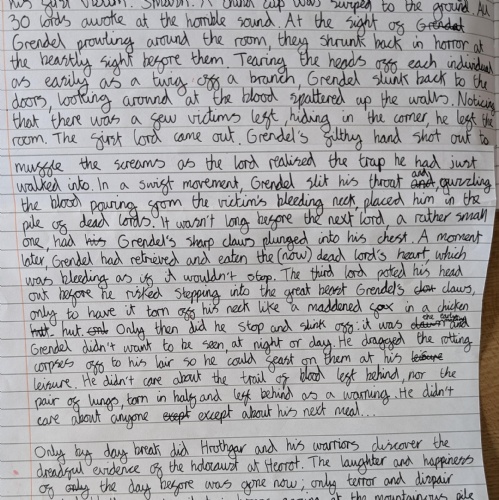 his first victim. Smash! A china cup was swiped to the ground. All
30 lords awoke at the horrible sound. At the sight of Grendel
Grendel prowling around the room, they shrunk back in horror at
the beastly sight before them. Tearing the heads off each individual
as easily as a twig off a branch, Grendel slunk back to the
doors, looking around at the blood spattered up the walls. Noticing
that there was a few victims left, hiding in the corner, he left the
room. The first lord came out. Grendel's filthy hand shot out to
muffle the screams as the lord realised the trap he had just
walked into. In a swift movement, Grendel slit his throat and and, guzzling
the blood pouring from the victim's bleeding neck, placed him in the
pile of dead lords. It wasn't long before the next lord, a rather small
one, had his Grendel's sharp claws plunged into his chest. A moment
later, Grendel had retrieved and eaten the (now) dead lord's heart, which
was bleeding as if it wouldn't stop. The third lord poked his head
out before he risked stepping into the great beast Grendel's claws,
only to have it torn off his neck like a maddened fox in a chicken
hut. hut. Only then did he stop and slink off: it was the and
Grendel didn't want to be seen, at night or day. He dragged the rotting
corpses off to his lair so he could feast on them at his leisure
leisure. He didn't care about the trail of blood left behind, nor the
pair of lungs, torn in half and left behind as a warning. He didn't
care about anyone except except about his next meal...
Only by day break did Hrothgar and his warriors discover the
dreadful evidence of the holocaust at Heorot. The laughter and happiness
of only the day before was gone now; only terror and dispair
at the mountainous pile